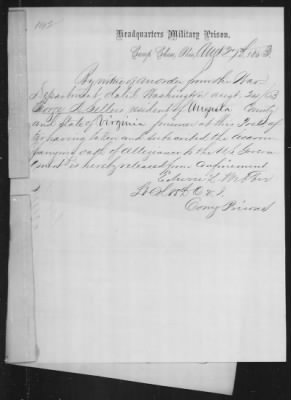 142
Headquarters Military Prison,
Camp Chase, Ohio, Aug 27th 1863.
By virtue of an order from the War
Department, dated Washington Augt 24/63
Sellers resident of County
and State of Virginia prisoner at this Post
having taken and subscribed the accom
panying oath of Allegiance to the U.S. Govern
ment is hereby released from confinement
Edwin L. Webber
Comg Prison